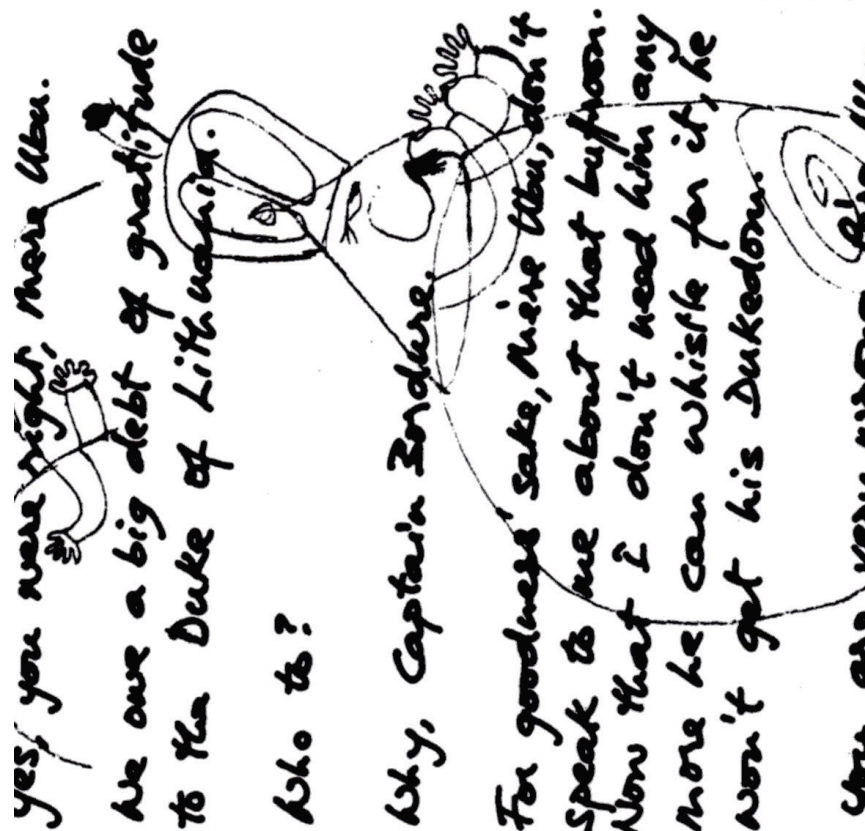 Yes, you were right, mère Ubu.
We owe a big debt of gratitude
to the Duke of Lithuania.
Who to?
Why, Captain Bordure.
For goodness' sake, mère Ubu, don't
speak to me about that buffoon.
Now that I don't need him any
more he can whistle for it, he
won't get his Dukedom.
You are very wrong